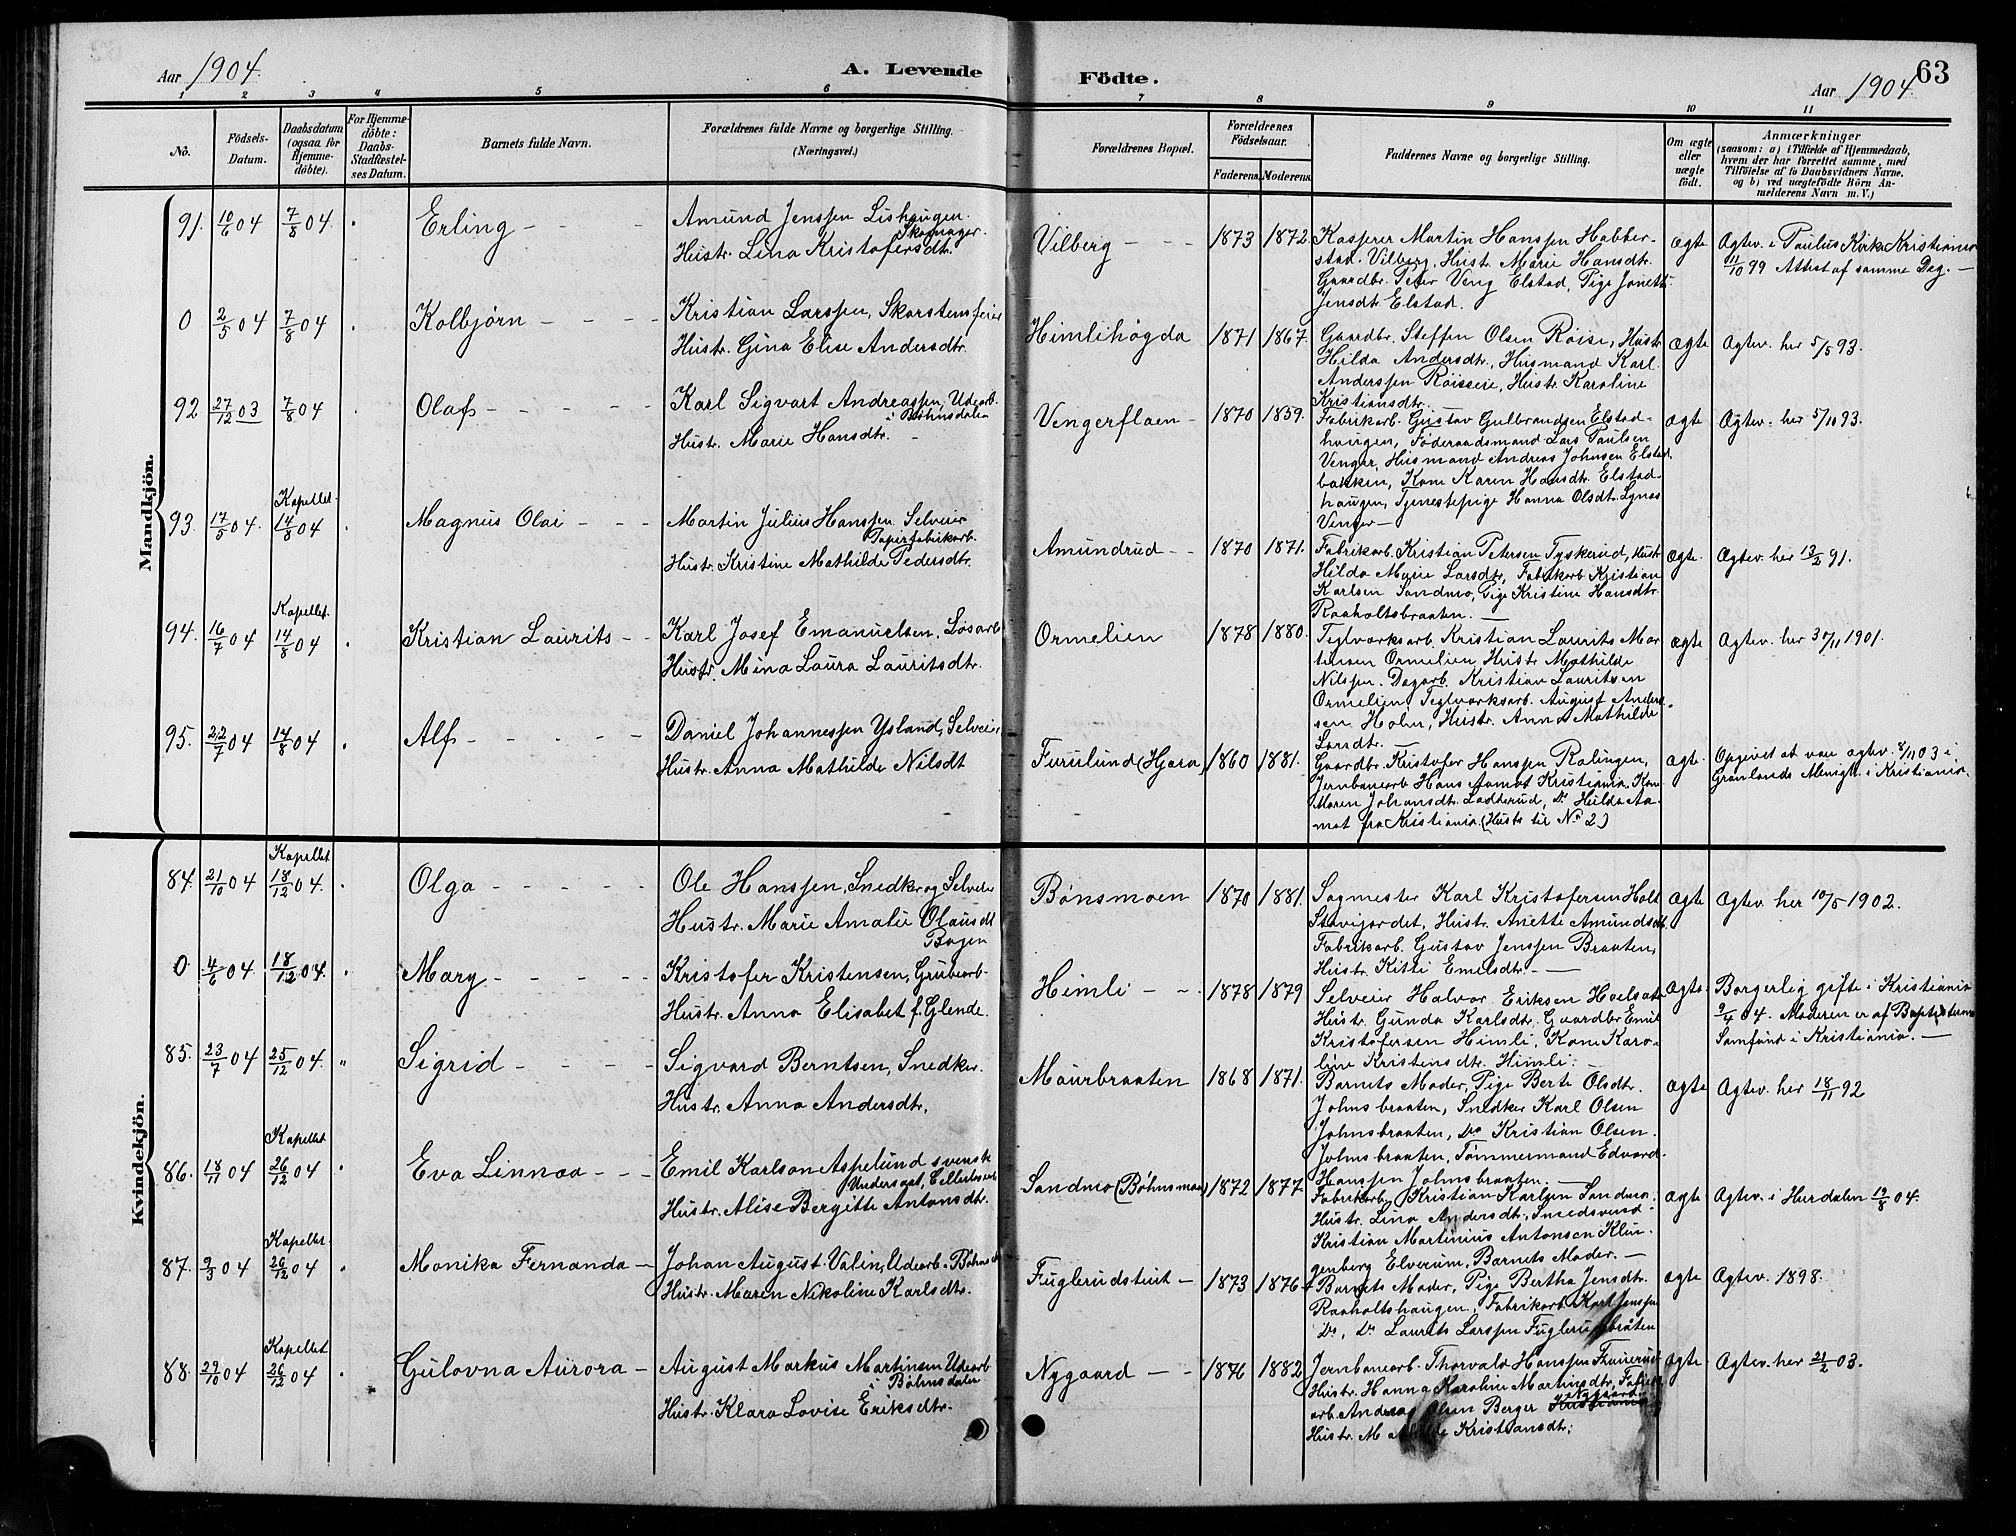 Aar 1904.
A. Levende Födte.
Aar 1904.
63
1 2 3 4 5 6 7 8 9 10 11
No.
Födsels-Datum.
Daabsdatum (ogsaa for Hjemme-döbte).
For Hjemme-döbte: Daabs-Stadfæstel-ses Datum.
Barnets fulde Navn.
Forældrenes fulde Navne og borgerlige Stilling. (Næringsvei.)
Forældrenes Bopæl.
Forældrenes Födselsaar.
Faderens. Moderens.
Faddernes Navne og borgerlige Stilling.
Om ægte eller uægte födt.
Anmærkninger
(saasom: a) i Tilfælde af Hjemmedaab, hvem der har forrettet samme, med Tilföielse af to Daabsvidners Navne, og b) ved uægtefödte Börn An-melderens Navn m. V.)
Mandkjön.
91. 10/6 04 7/8 04. Erling
Amund Jenssen Lishaugen. Skomager.
Hustr. Lina Kristofersdtr.
Vilberg 1873 1872
Kasperer Martin Hanssen Habber-
stad. Vilberg, Hust. Marie Hansdtr.
Gaardbr. Peter Veng Elstad, Pige Janette
Jensdtr Elstad.
ægte
Ægtev. i Paulus Kirke Kristiania
11/10 99 Attest af samme Dag.
0 2/5 04 7/8 04 Kolbjørn
Kristian Larssen, Skorstensfeier
Hustr. Gina Elise Andersdtr.
Himlihøgda 1871 1867.
Gaardbr. Steffen Olsen Røise, Hustr
Hilda Andersdtr, Husmand Karl
Anderssen Røisseie, Hustr Karoline
Kristiansdtr.
ægte
Ægtev. her 5/5 93.
92 27/12 03 7/8 04 Olaf
Karl Sigvart Andreassen, Udearb.
i Bøhnsdalen
Hustr. Marie Hansdtr.
Vengerflaen 1870 1859.
Fabrikarb. Gustav Gulbrandsen Elstad-
haugen, Føderaadsmand Lars Paulsen
Venger, Husmand Andreas Johnsen Elstad
bakken, Kone Karen Hansdtr Elstad-
haugen, Tjenestepige Hanna Olsdtr.
Venger
ægte
Ægtev. her 5/10 93.
93. 17/5 04. Kapellet 14/8 04 Magnus Olai
Martin Julius Hanssen Selveier
Papirfabrikarb.
Hustr. Kristine Mathilde Pedersdtr.
Amundrud 1870 1871.
Fabrikarb. Kristian Petersen Tyskerud, Hustr
Hilda Marie Larsdtr, Fabrikarb Kristian
Karlsen Sandmo, Pige Kristine Hansdtr
Raaholtsbraaten.
ægte.
Ægtev. her 13/2 91.
94. 16/7 04 Kapellet. 14/8 04 Kristian Laurits
Karl Josef Emanuelsen, Løsarb
Hustr. Mina Laura Lauritsdtr.
Ormelien 1878 1880.
Teglverksarb. Kristian Laurits Mar
tensen Ormelien, Hustr Mathilde
Nilssen. Dagarb. Kristian Lauritsen
Ormelien, Teglverksarb. August Ander-
sen Holm, Hustr. Anna Mathilde
ægte
Ægtev. her 30/11 1901.
95. 22/7 04 14/8 04 Alf
Daniel Johannessen Ysland, Selveier
Hustr. Anna Mathilde Nilsdt
Furulund (Hjera) 1860 1881.
Gaardbr. Kristofer Hanssen Ralingen,
Jernbanearb Hans Aamot Kristiania. Kone
Maren Johansdtr. Ladderud, Do Hilda Aa-
mot fra Kristiania. (Hustr til No 2)
ægte.
Opgivet at være ægtev. 8/11 03 i
Grønlands Menigh. i Kristiania.
Kvindekjön.
84. 21/10 04 Kapellet 18/12 04. Olga
Ole Hanssen, Snedker og Selveier
Hustr. Marie Amalie Olausdt
Bønsmoen 1870 1881.
Sagmester Karl Kristofersen Holt
Stavijordet, Hustr. Anette Amundsdt
Fabrikarb. Gustav Jenssen Braaten,
Hustr. Kitti Emilsdtr.
ægte
Ægtev her 10/5 1902.
0 4/6 04 18/12 04. Mary
Bagen
Kristofer Kristensen, Grubearb-
Hustr. Anna Elisabet f. Glende.
Himli 1878 1879
Selveier Halvor Eriksen
Hustr. Gunda Karlsdtr. Gaardbr Emil
Kristofersen Himli, Kone Karo-
line Kristensdtr. Himli.
ægte
Borgerlig gifte i Kristiania
2/4 04. Moderen er af Baptisternes
Samfund i Kristiania.
85. 23/7 04 25/12 04. " Sigrid
Sigvard Berntsen, Snedker.
Hustr. Anna Andersdtr.
Maurbraaten 1868 1871.
Barnets Moder, Pige Berte Olsdtr.
Johnsbraaten, Snedker Karl Olsen
Johnsbraaten, Do Kristian Olsen
Johnsbraaten, Tømmermand Edvard
Hanssen Johnsbraaten.
ægte
Ægtev. her 18/11 92
86. 18/11 04 Kapellet 26/12 04 Eva Linnea
Emil Karlson Aspelund svensk
Undersaat, Cellulosearb
Hustr. Alise Bergitte Antonsdtr.
Sandmo (Bøhnsmoen) 1872 1877
Fabrikarb Kristian Karlsen Sandmo.
Hustr. Lina Andersdtr. Smedsvend
Kristian Martinius Antonsen Klin-
genberg Elverum, Barnets Moder.
ægte
Ægtev. i Hurdalen 19/8 04.
87. 9/3 04 Kapellet. 26/12 04 Monika Fernanda
Johan August Valin, Udearb. Bøhnsd.
Hustr. Maren Nikoline Karlsdtr.
Fuglerudstuit 1873 1876.
Barnets Moder, Pige Bertha Jensdtr.
Raaholtshaugen, Fabrikarb Karl Jenssen
Do, Do Laurits Larssen Fuglerudsbråten
ægte
Ægtev. 1898.
88. 29/10 04 Kapellet 26/12 04 Gulovna Aurora
August Markus Martinsen Udearb
i Bøhnsdalen
Hustr. Klara Lovise Eriksdtr.
Nygaard 1876 1882
Jernbanearb. Thorvald Hanssen
Hustr. Hanna Karoline Martinsdtr,
arb. Andreas Olsen Berger Nygaard Kristiania
Hustr. Kristiansdtr.
ægte
Ægtev. her 21/2 03.